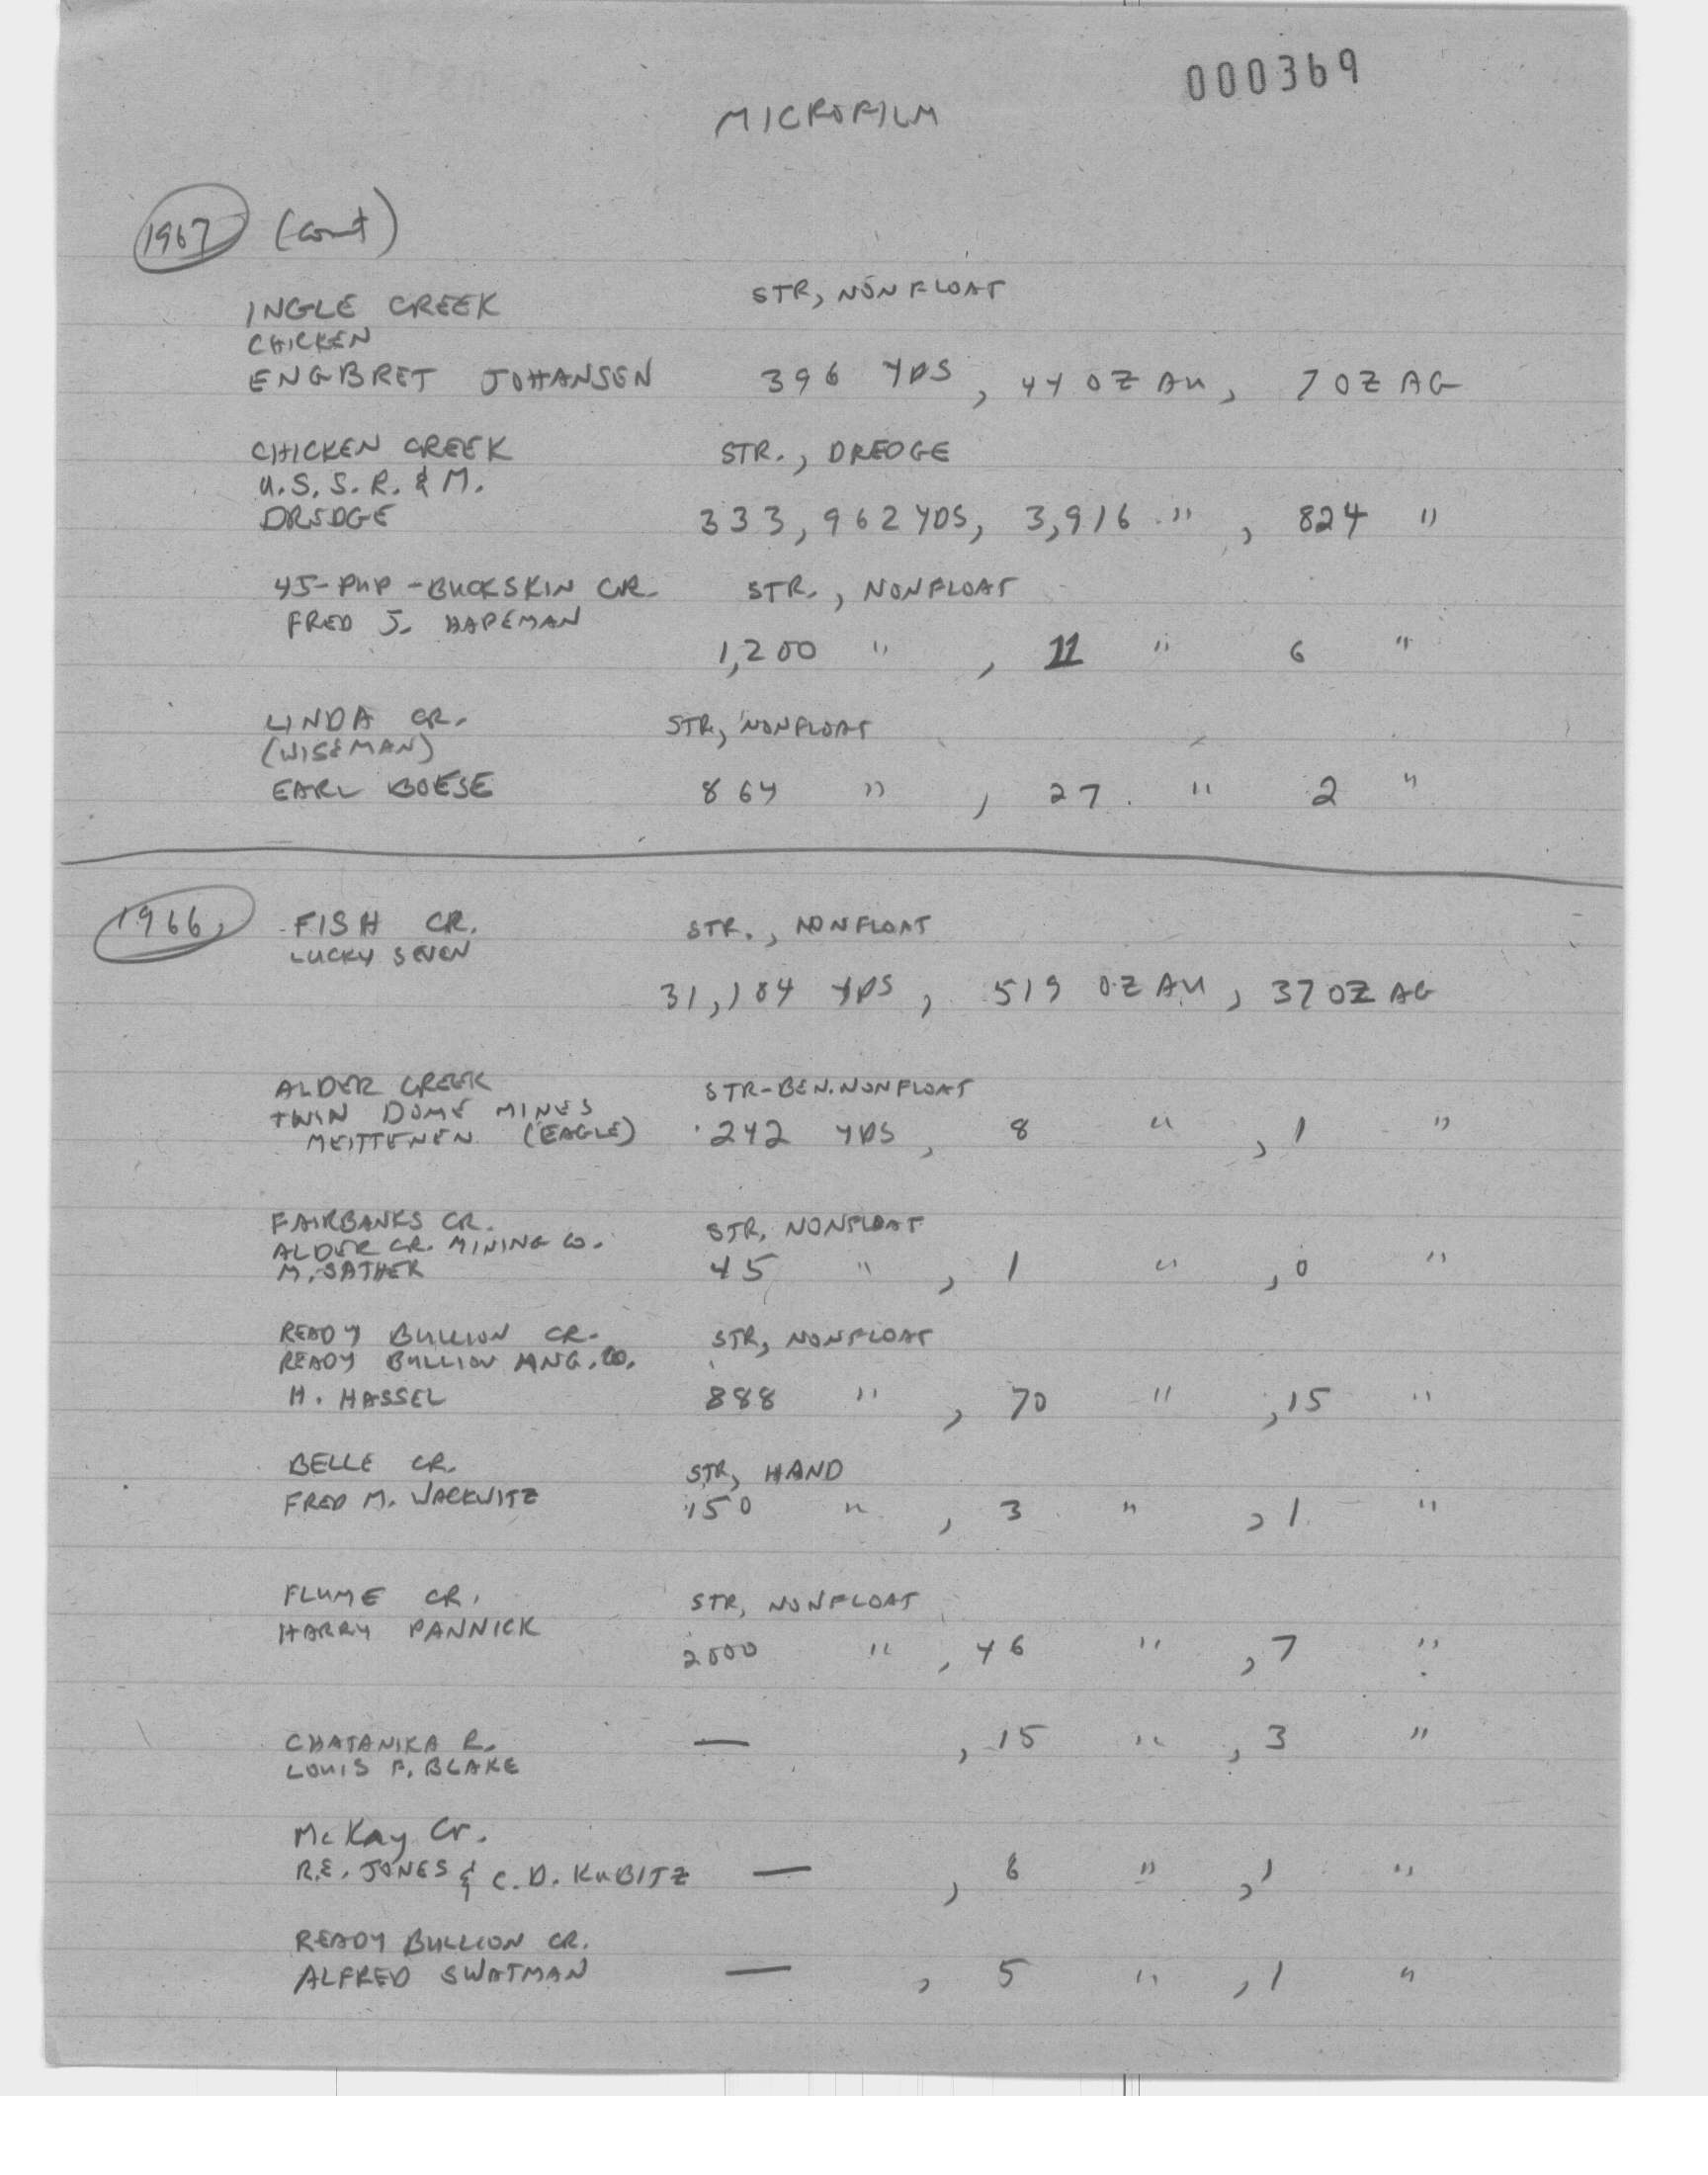 000369
MICROFILM
1967 (cont)
INGLE CREEK STR, NONFLOAT
CHICKEN
ENGBRET JOHANSEN 396 YDS, 44 OZ AU, 7 OZ AG
CHICKEN CREEK STR., DREDGE
U.S.S.R. & M.
DREDGE 333,962 YDS, 3,916 " , 824 "
45-PUP-BUCKSKIN CR. STR., NONFLOAT
FRED J. HAPEMAN
1,200 " , 11 " 6 "
LINDA CR. STR, NONFLOAT
(WISEMAN)
EARL BOESE 864 " , 27 " 2 "
1966, FISH CR. STR., NONFLOAT
LUCKY SEVEN
31,184 YDS, 519 OZ AU, 37 OZ AG
ALDER CREEK STR-BEN. NONFLOAT
TWIN DOME MINES
MEITTENEN (EAGLE) 242 YDS, 8 " , 1 "
FAIRBANKS CR. STR, NONFLOAT
ALDER CR. MINING CO.
M. SATHER 45 " , 1 " , 0 "
READY BULLION CR. STR, NONFLOAT
READY BULLION MNG. CO.
H. HASSEL 888 " , 70 " , 15 "
BELLE CR. STR, HAND
FRED M. WACKWITZ 150 " , 3 " , 1 "
FLUME CR. STR, NONFLOAT
HARRY PANNICK 2000 " , 46 " , 7 "
CHATANIKA R. — , 15 " , 3 "
LOUIS F. BLAKE
McKay Cr.
R.E. JONES & C.D. KUBITZ — , 6 " , 1 "
READY BULLION CR.
ALFRED SWATMAN — , 5 " , 1 "